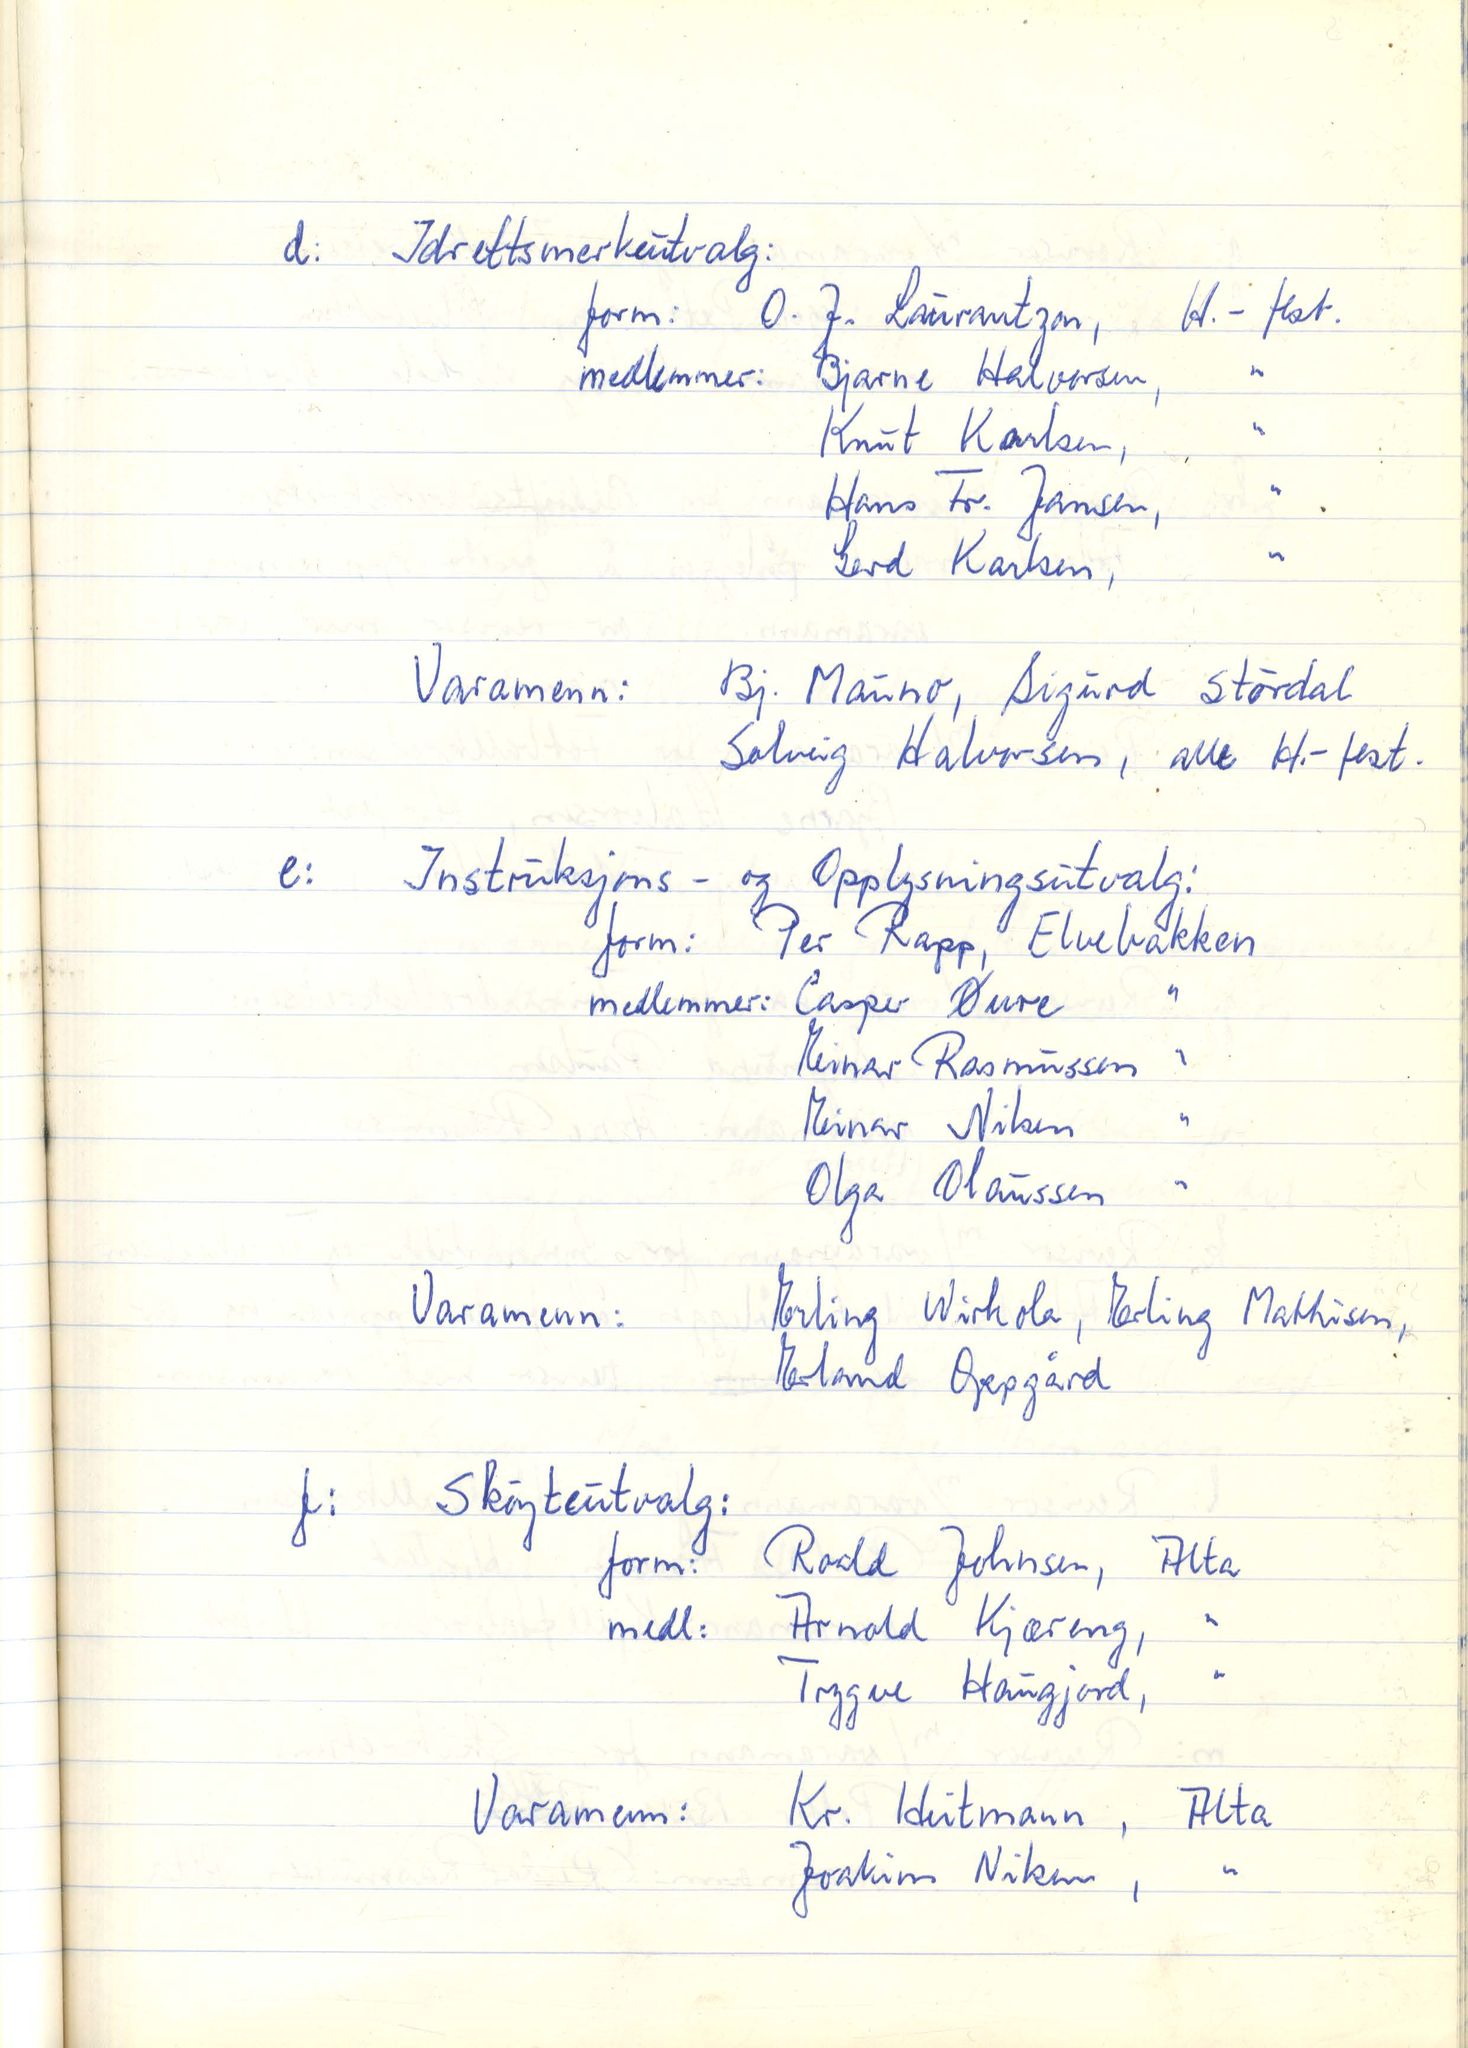 d: Idrettsmerkeutvalg:
form: O. J. Laurantzon, H.-fest.
medlemmer: Bjarne Halvorsen, "
Knut Karlsen, "
Hans Fr. Jansen, "
Gerd Karlsen, "
Varamenn: Bj. Mauno, Sigurd Stördal
Solveig Halvorsen, alle H.-fest.
e: Instruksjons- og Opplysningsutvalg:
form: Per Rapp, Elvebakken
medlemmer: Casper Øvre "
Einar Rasmussen "
Einar Niken "
Olga Olaussen "
Varamenn: Erling Wirkola, Erling Mathisen,
Erland Oppgård
f: Sköyteutvalg:
form: Roald Johnsen, Alta
medl: Arnold Kjæreng, "
Trygve Haugjord, "
Varamenn: Kr. Heitmann, Alta
Joakim Niken, "